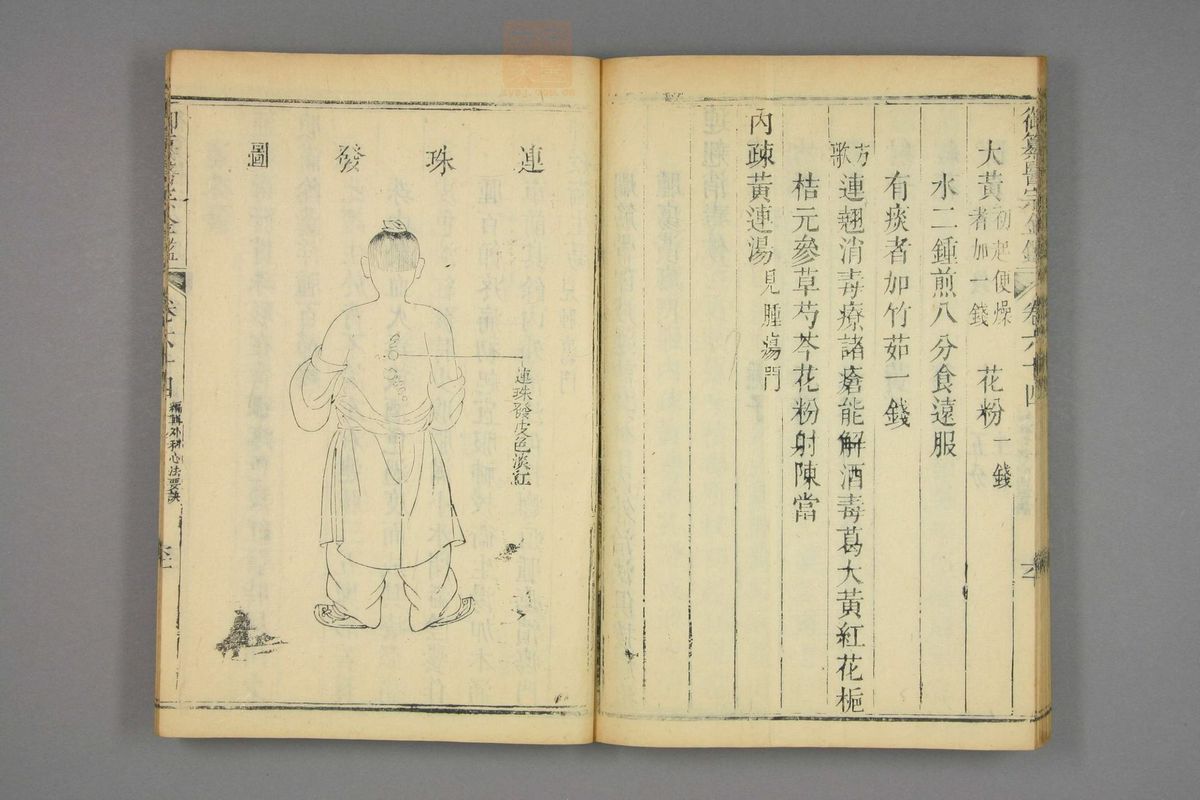 御纂醫宗金鑑 卷六十四
大黃初起便燥者加一錢 花粉一錢
水二鍾煎八分食遠服
有痰者加竹茹一錢
方歌連翹消毒療諸瘡能解酒毒葛大黃紅花梔
桔元參草芍芩花粉射陳當
內疎黃連湯見腫瘍門
連珠發圖
連珠發皮色淡紅
御纂醫宗金鑑 卷六十四 編輯外科心法要訣